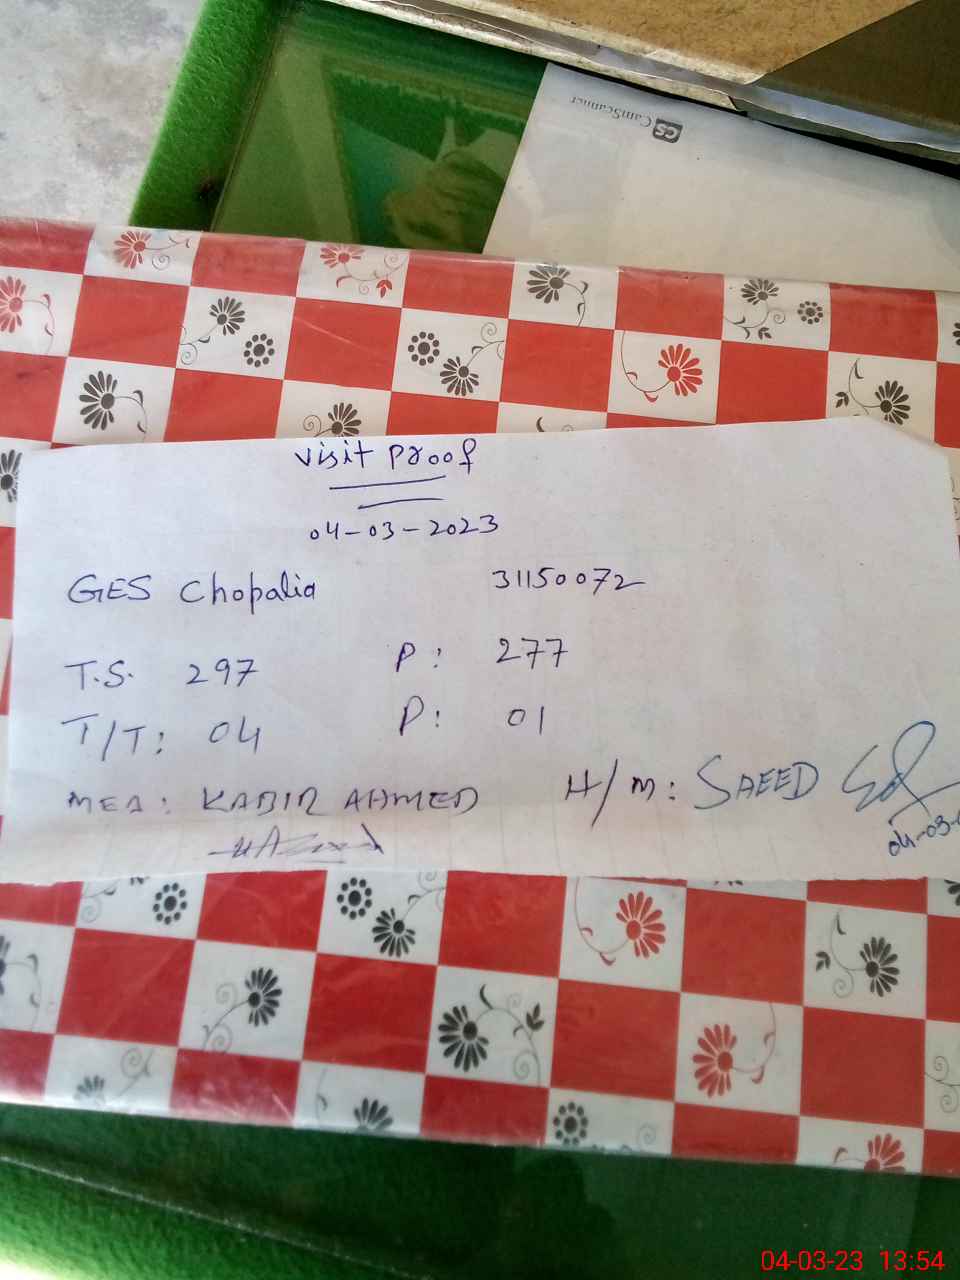 CS CamScanner
visit proof
04-03-2023
GES Chopalia 31150072
T.S. 297 P: 277
T/T: 04 P: 01
MEA: KABIR AHMED H/M: SAEED
04-03-
04-03-23 13:54